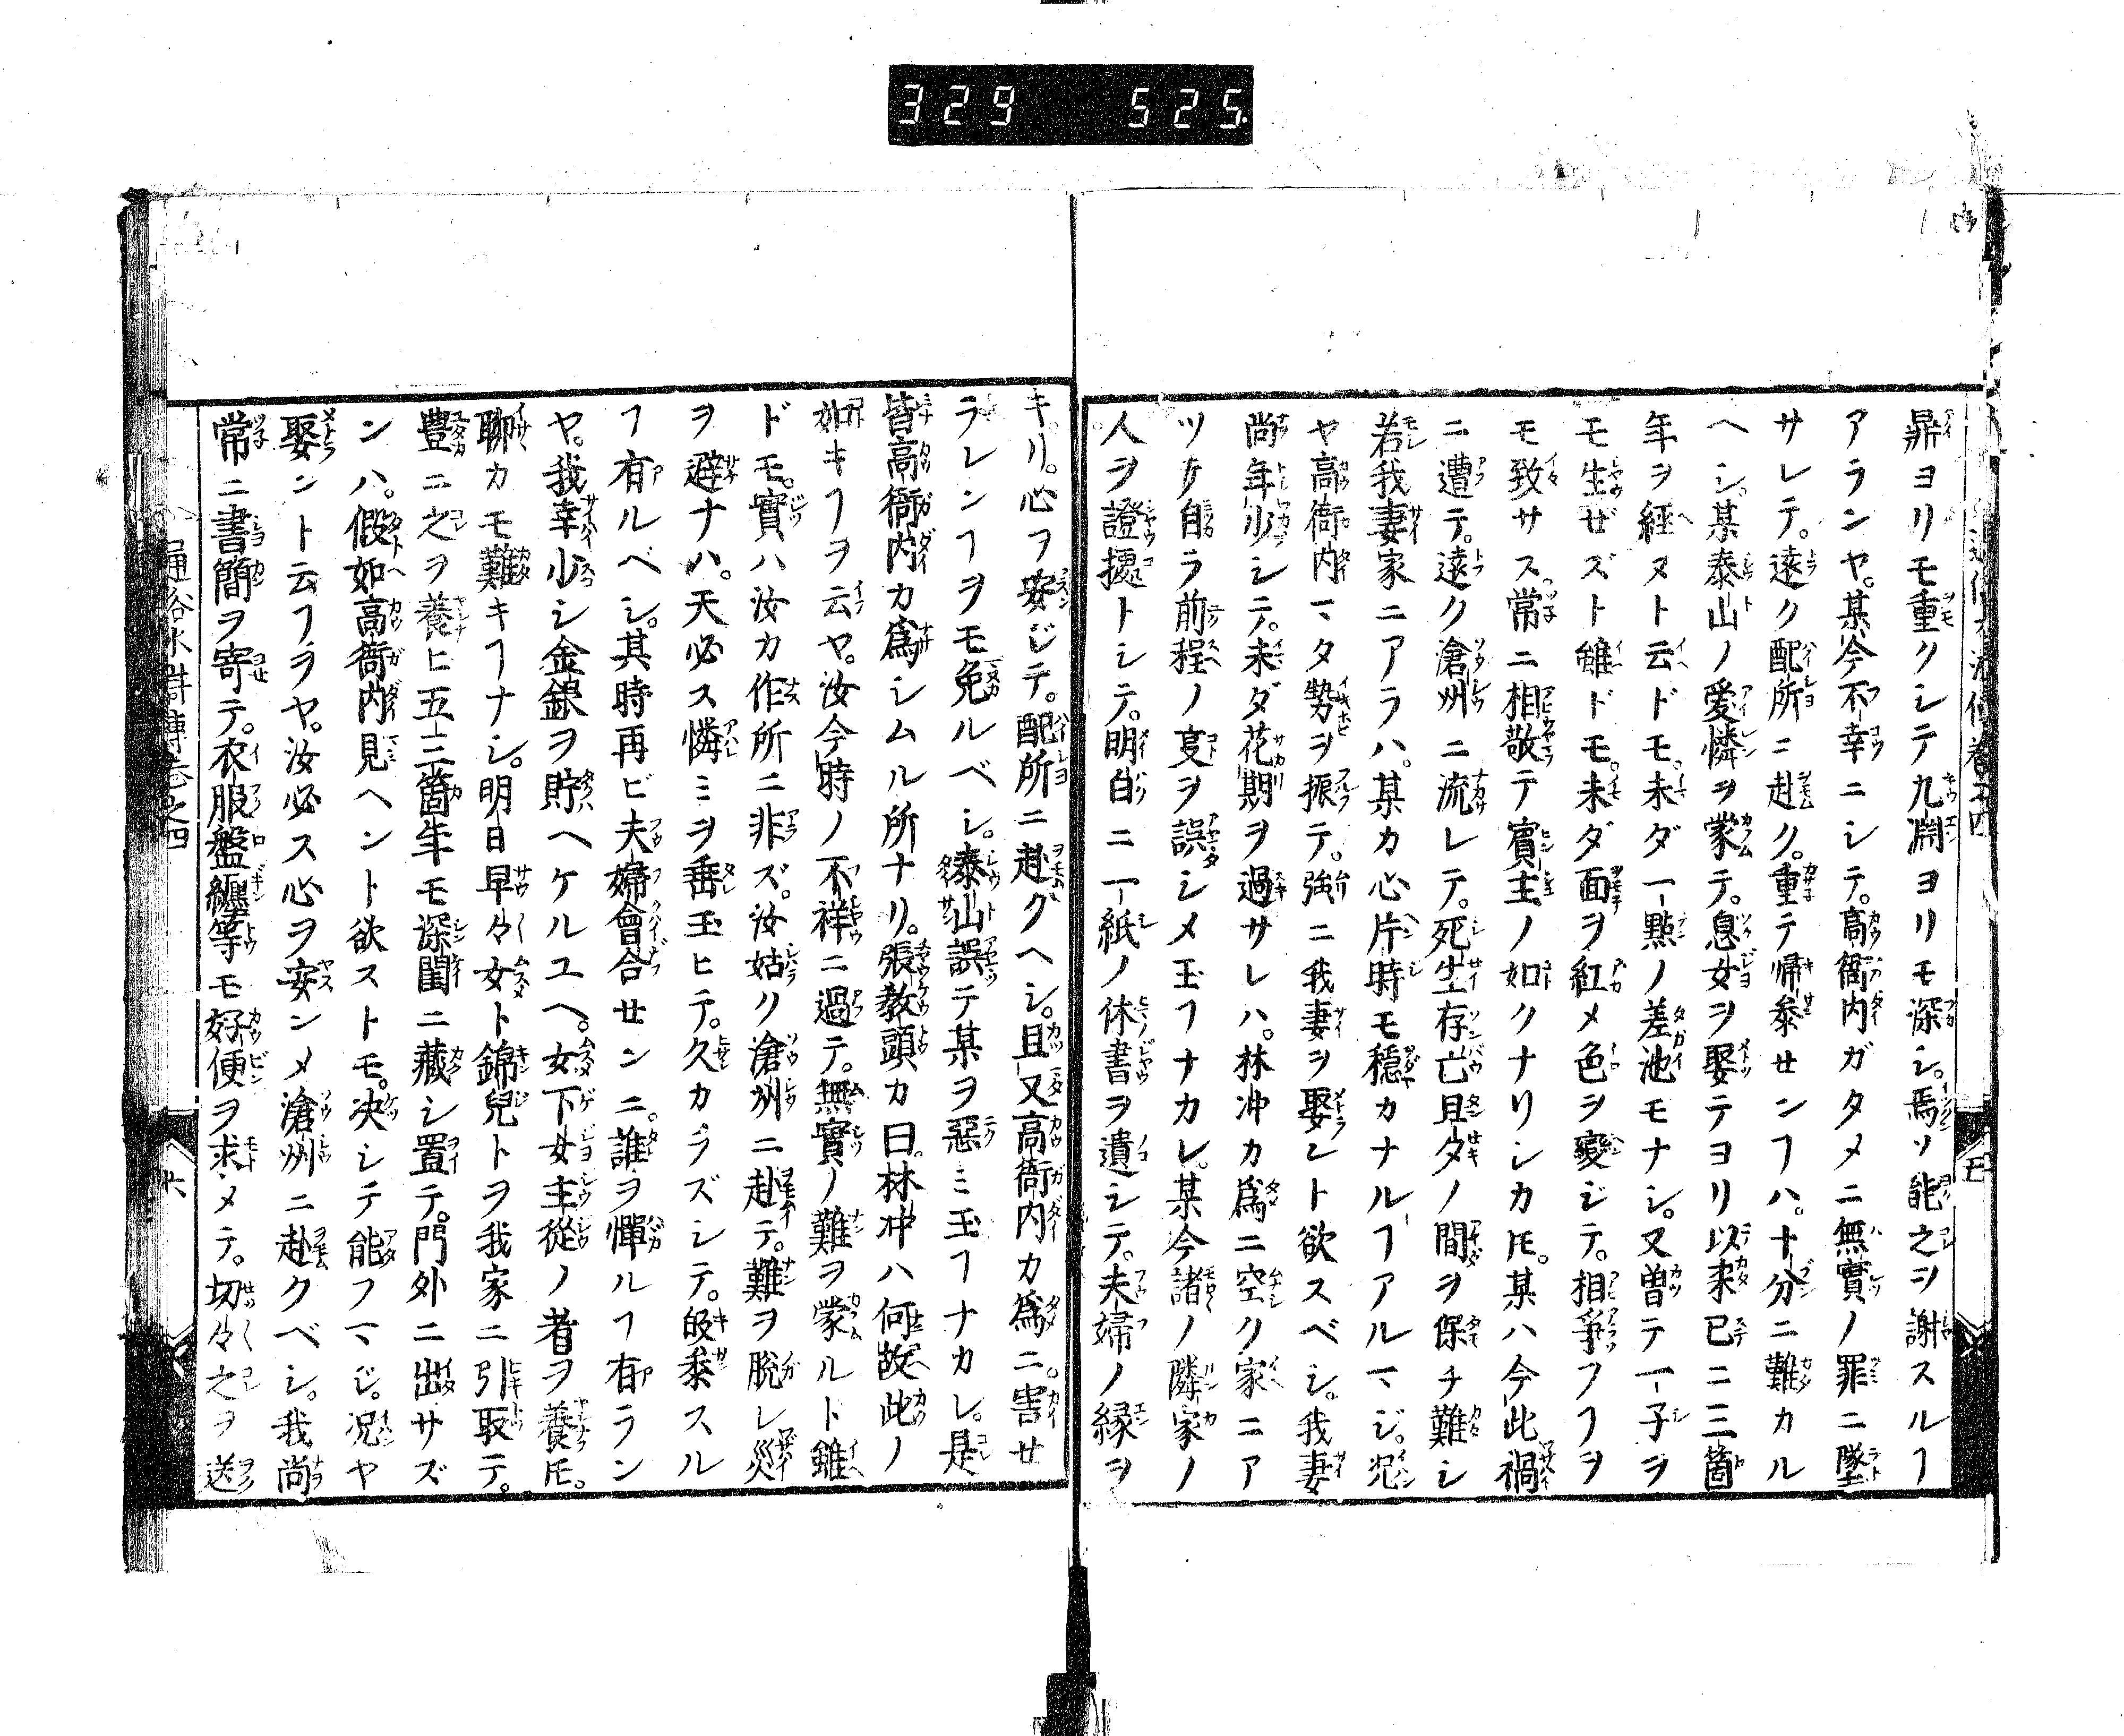 329 525.
鼎ヨリモ重クシテ九淵ヨリモ深シ。焉ソ能之ヲ謝スルヿ
アランヤ。某今不幸ニシテ。高衙内ガタメニ無實ノ罪ニ墜
サレテ。遠ク配所ニ赴ク。重テ帰参センヿハ。十分ニ難カル
ヘシ。某泰山ノ愛憐ヲ蒙テ。息女ヲ娶テヨリ以来已ニ三箇
年ヲ經ヌト云ドモ。未ダ一點ノ差池モナシ。又曽テ一子ヲ
モ生ゼズト雖ドモ。未ダ面ヲ紅メ色ヲ變ジテ。相爭フヿヲ
モ致サス。常ニ相敬テ賓主ノ如クナリシカ𪜈。某ハ今此禍
ニ遭テ。遠ク滄州ニ流レテ。死生存亡且夕ノ間ヲ保チ難シ
若我妻家ニアラハ。某カ心片時モ穏カナルヿアルマジ。况
ヤ高衙内マタ勢ヲ振テ。強ニ我妻ヲ娶ント欲スベシ。我妻
尚年少シテ。未ダ花期ヲ過サレハ。林冲カ爲ニ空ク家ニア
ツテ自ラ前程ノ㕝ヲ誤シメ玉フナカレ。某今諸ノ隣家ノ
人ヲ證據トシテ。明白ニ一紙ノ休書ヲ遺シテ。夫婦ノ縁ヲ
キリ。心ヲ安ジテ。配所ニ赴クヘシ。且又高衙内カ爲ニ。害セ
ラレンヿヲモ免ルベシ。泰山誤テ某ヲ惡ミ玉フナカレ。是
皆高衙内カ爲シムル所ナリ。張教頭カ曰。林冲ハ何故此ノ
如キヿヲ云ヤ。汝今時ノ不祥ニ過テ。無實ノ難ヲ蒙ルト雖
ドモ。實ハ汝カ作所ニ非ズ。汝姑ク滄州ニ赴テ。難ヲ脱レ災
ヲ避ナハ。天必ス憐ミヲ垂玉ヒテ。久カラズシテ。皈参スル
ヿ有ルベシ。其時再ビ夫婦會合センニ。誰ヲ憚ルヿ有ラン
ヤ。我幸少シ金銀ヲ貯ヘケルユヘ。女下女主從ノ者ヲ養𪜈。
聊カモ難キヿナシ。明日早々女ト錦兒トヲ我家ニ引取テ。
豊ニ之ヲ養ヒ五三箇年モ深閨ニ藏シ置テ。門外ニ出サズ
ンハ。假如高衙内見ヘント欲ストモ。决シテ能フマジ。况ヤ
娶ント云フヲヤ。汝必ス心ヲ安ンメ滄州ニ赴クベシ。我尚
常ニ書簡ヲ寄テ。衣服盤纏等モ好便ヲ求メテ。切々之ヲ送
通俗水滸傳卷之四
六